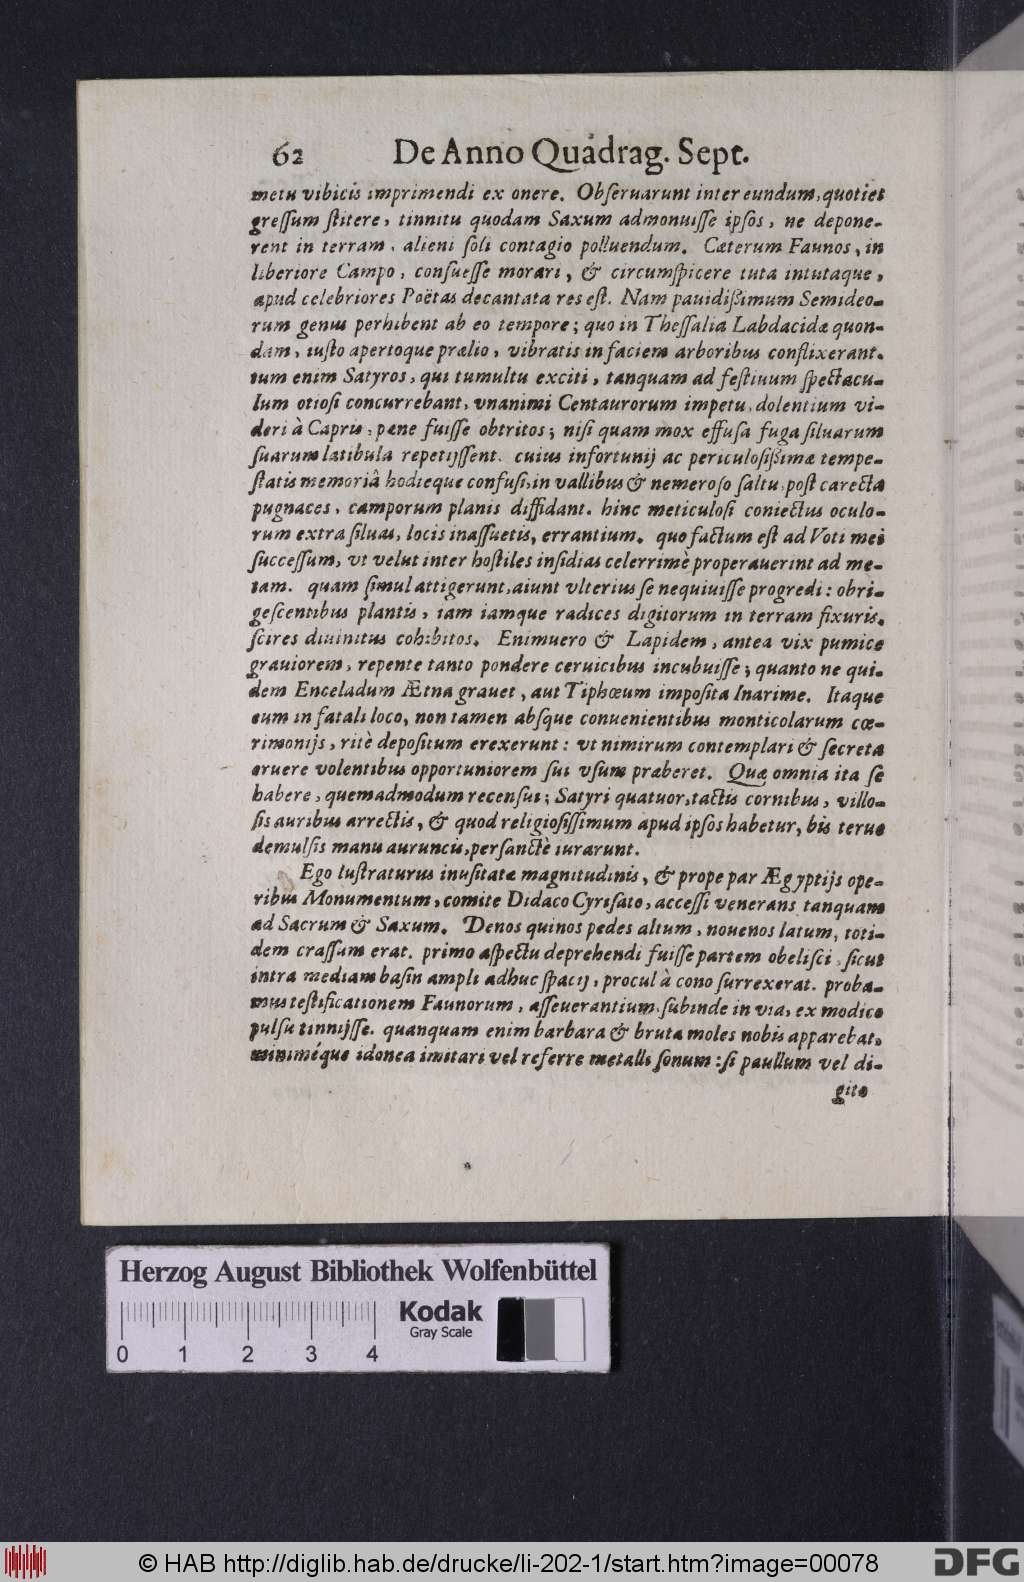 62 De Anno Quadrag. Sept.
metu vibicis imprimendi ex onere. Obſeruarunt inter eundum, quoties
greſſum ſtitere, tinnitu quodam Saxum admonuiſſe ipſos, ne depone-
rent in terram, alieni ſoli contagio polluendum. Cæterum Faunos, in
liberiore Campo, conſueſſe morari, & circumſpicere tuta intutaque,
apud celebriores Poëtas decantata res eſt. Nam pauidißimum Semideo-
rum genus perhibent ab eo tempore; quo in Theſſalia Labdacidæ quon-
dam, iuſto apertoque prælio, vibratis in faciem arboribus conflixerant.
tum enim Satyros, qui tumultu exciti, tanquam ad feſtiuum ſpectacu-
lum otioſi concurrebant, vnanimi Centaurorum impetu, dolentium vi-
deri à Capris, pæne fuiſſe obtritos; niſi quam mox effuſa fuga ſiluarum
ſuarum latibula repetijſſent. cuius infortunij ac periculoſißimæ tempe-
ſtatis memoriâ hodieque confuſi, in vallibus & nemeroſo ſaltu, poſt carecta
pugnaces, camporum planis diffidant. hinc meticuloſi coniectus oculo-
rum extra ſiluas, locis inaſſuetis, errantium. quo factum eſt ad Voti mei
ſucceſſum, vt velut inter hoſtiles inſidias celerrimè properauerint ad me-
tam. quam ſimul attigerunt, aiunt vlterius ſe nequiuiſſe progredi: obri-
geſcentibus plantis, iam iamque radices digitorum in terram fixuris.
ſcires diuinitus cohibitos. Enimuero & Lapidem, antea vix pumice
grauiorem, repente tanto pondere ceruicibus incubuiſſe; quanto ne qui-
dem Enceladum Ætna grauet, aut Tiphœum impoſita Inarime. Itaque
eum in fatali loco, non tamen abſque conuenientibus monticolarum cœ-
rimonijs, ritè depoſitum erexerunt: vt nimirum contemplari & ſecreta
eruere volentibus opportuniorem ſui vſum præberet. Quæ omnia ita ſe
habere, quemadmodum recenſui; Satyri quatuor, tactis cornibus, villo-
ſis auribus arrectis, & quod religioſiſſimum apud ipſos habetur, bis terue
demulſis manu auruncis, perſanctè iurarunt.
Ego luſtraturus inuſitatæ magnitudinis, & prope par Ægyptijs ope-
ribus Monumentum, comite Didaco Cyriſato, acceſſi venerans tanquam
ad Sacrum & Saxum. Denos quinos pedes altum, nouenos latum, toti-
dem craſſum erat. primo aſpectu deprehendi fuiſſe partem obeliſci, ſicut
intra mediam baſin ampli adhuc ſpacij, procul à cono ſurrexerat. proba-
mus teſtificationem Faunorum, aſſeuerantium, ſubinde in via, ex modico
pulſu tinnijſſe. quanquam enim barbara & bruta moles nobis apparebat,
miniméque idonea imitari vel referre metalli ſonum: ſi paullum vel di-
gito
Herzog August Bibliothek Wolfenbüttel
Kodak
Gray Scale
0 1 2 3 4
© HAB http://diglib.hab.de/drucke/li-202-1/start.htm?image=00078
DFG